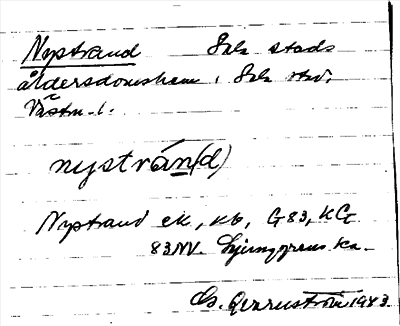 Nystrand Sala stads
ålderdomshem, Sala stad,
Västm. l.
nystrán(d)
Nystrand ek, kb, G83, KG
83NV. Ljunggrens ka.
1943